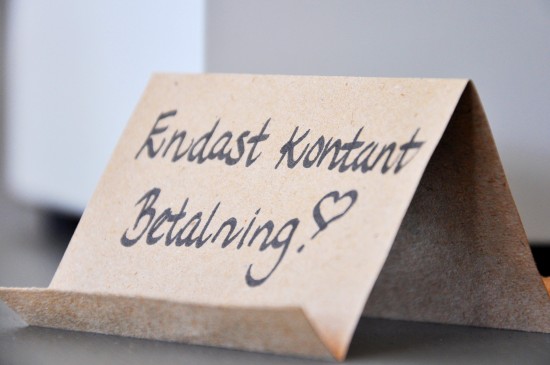 Endast Kontant
Betalning!